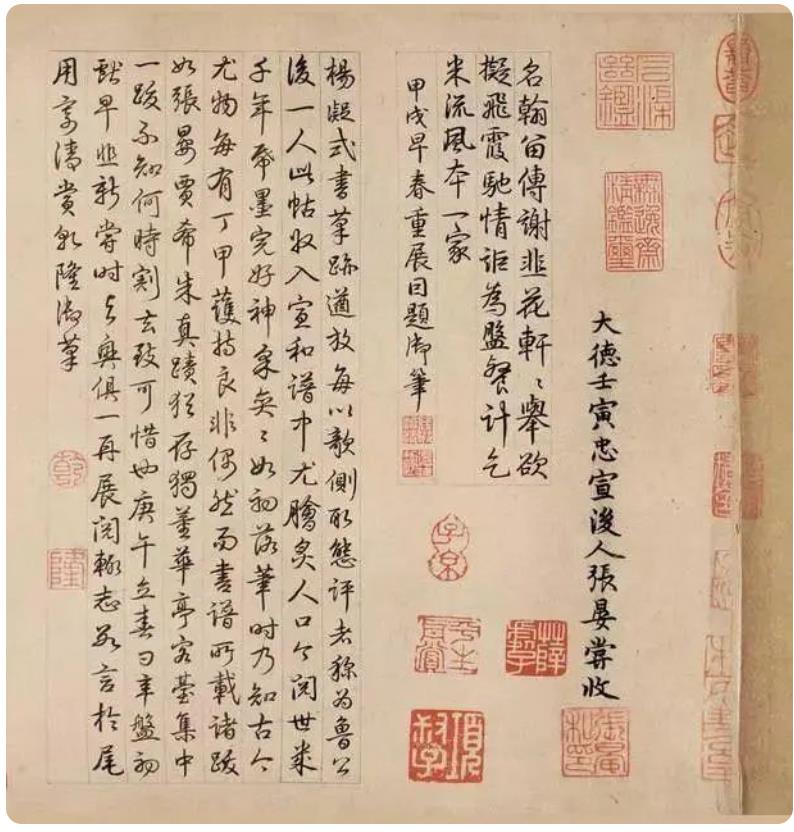 大德壬寅忠宣後人張晏嘗收
名翰留傳謝韭花軒〻舉欲
擬飛霞馳情詎為盤餐計乞
米流風本一家
甲戌早春重展因題御筆
子京
楊凝式書筆跡遒放每以欹側取態評者稱為魯公
後一人此帖收入宣和譜中尤膾炙人口今閱世幾
千年帋墨完好神采奕〻如初落筆時乃知古今
尤物每有丁甲護持良非偶然而書譜所載諸跋
如張晏賈希朱真蹟猶存獨董華亭容臺集中
一跋不知何時割去致可惜也庚午立春日辛盤初
獻早韭新嘗時與興俱一再展閱輒志數言於尾
用寫清賞乾隆御筆
乾
隆